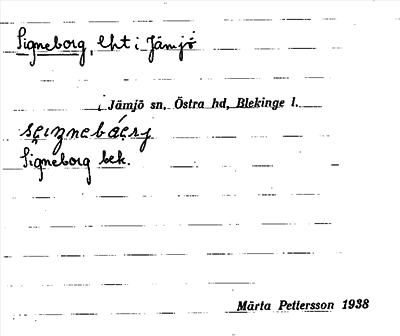 Signeborg, lht i Jämjö
i Jämjö sn, Östra hd, Blekinge l.
Signeborg bek.
Märta Pettersson 1938